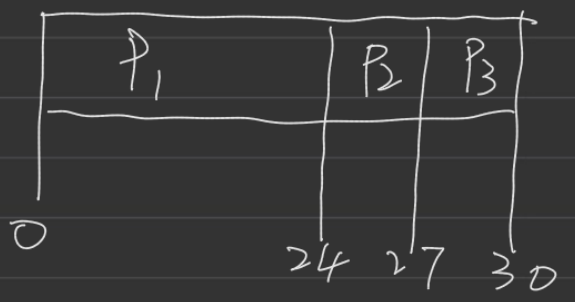 P₁ P₂ P₃
0 24 27 30